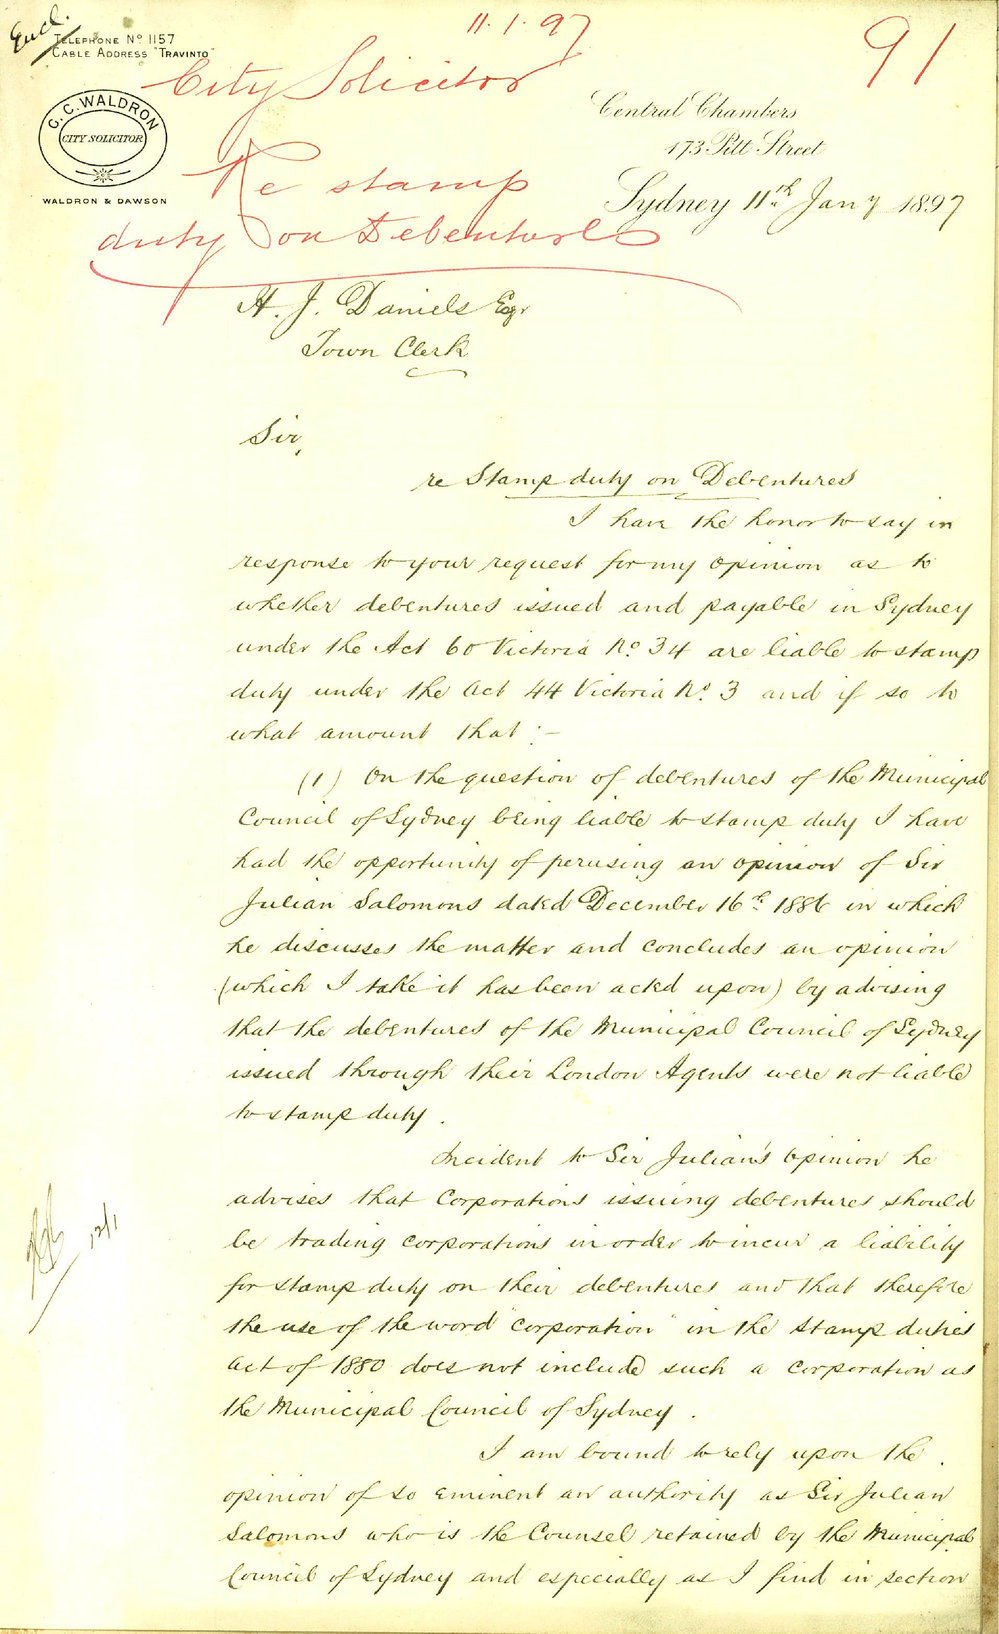 Encl.
11.1.97
91
TELEPHONE No 1157
CABLE ADDRESS "TRAVINTO"
City Solicitor
G. C. WALDRON
CITY SOLICITOR
WALDRON & DAWSON
Central Chambers
173 Pitt Street
Sydney 11th Jany 1897
Re stamp
duty on Debentures
H. J. Daniels Esqr
Town Clerk
Sir,
re Stamp duty on Debentures
I have the honor to say in
response to your request for my opinion as to
whether debentures issued and payable in Sydney
under the Act 60 Victoria No. 34 are liable to stamp
duty under the Act 44 Victoria No. 3 and if so to
what amount that :-
(1) On the question of debentures of the Municipal
Council of Sydney being liable to stamp duty I have
had the opportunity of perusing an opinion of Sir
Julian Salomons dated December 16th 1886 in which
he discusses the matter and concludes an opinion
(which I take it has been acted upon) by advising
that the debentures of the Municipal Council of Sydney
issued through their London Agents were not liable
to stamp duty.
Incident to Sir Julian's opinion he
advises that Corporations issuing debentures should
be trading corporations in order to incur a liability
for stamp duty on their debentures and that therefore
the use of the word "corporation" in the Stamp duties
Act of 1880 does not include such a corporation as
the Municipal Council of Sydney.
12/1
I am bound to rely upon the
opinion of so eminent an authority as Sir Julian
Salomons who is the Counsel retained by the Municipal
Council of Sydney and especially as I find in section